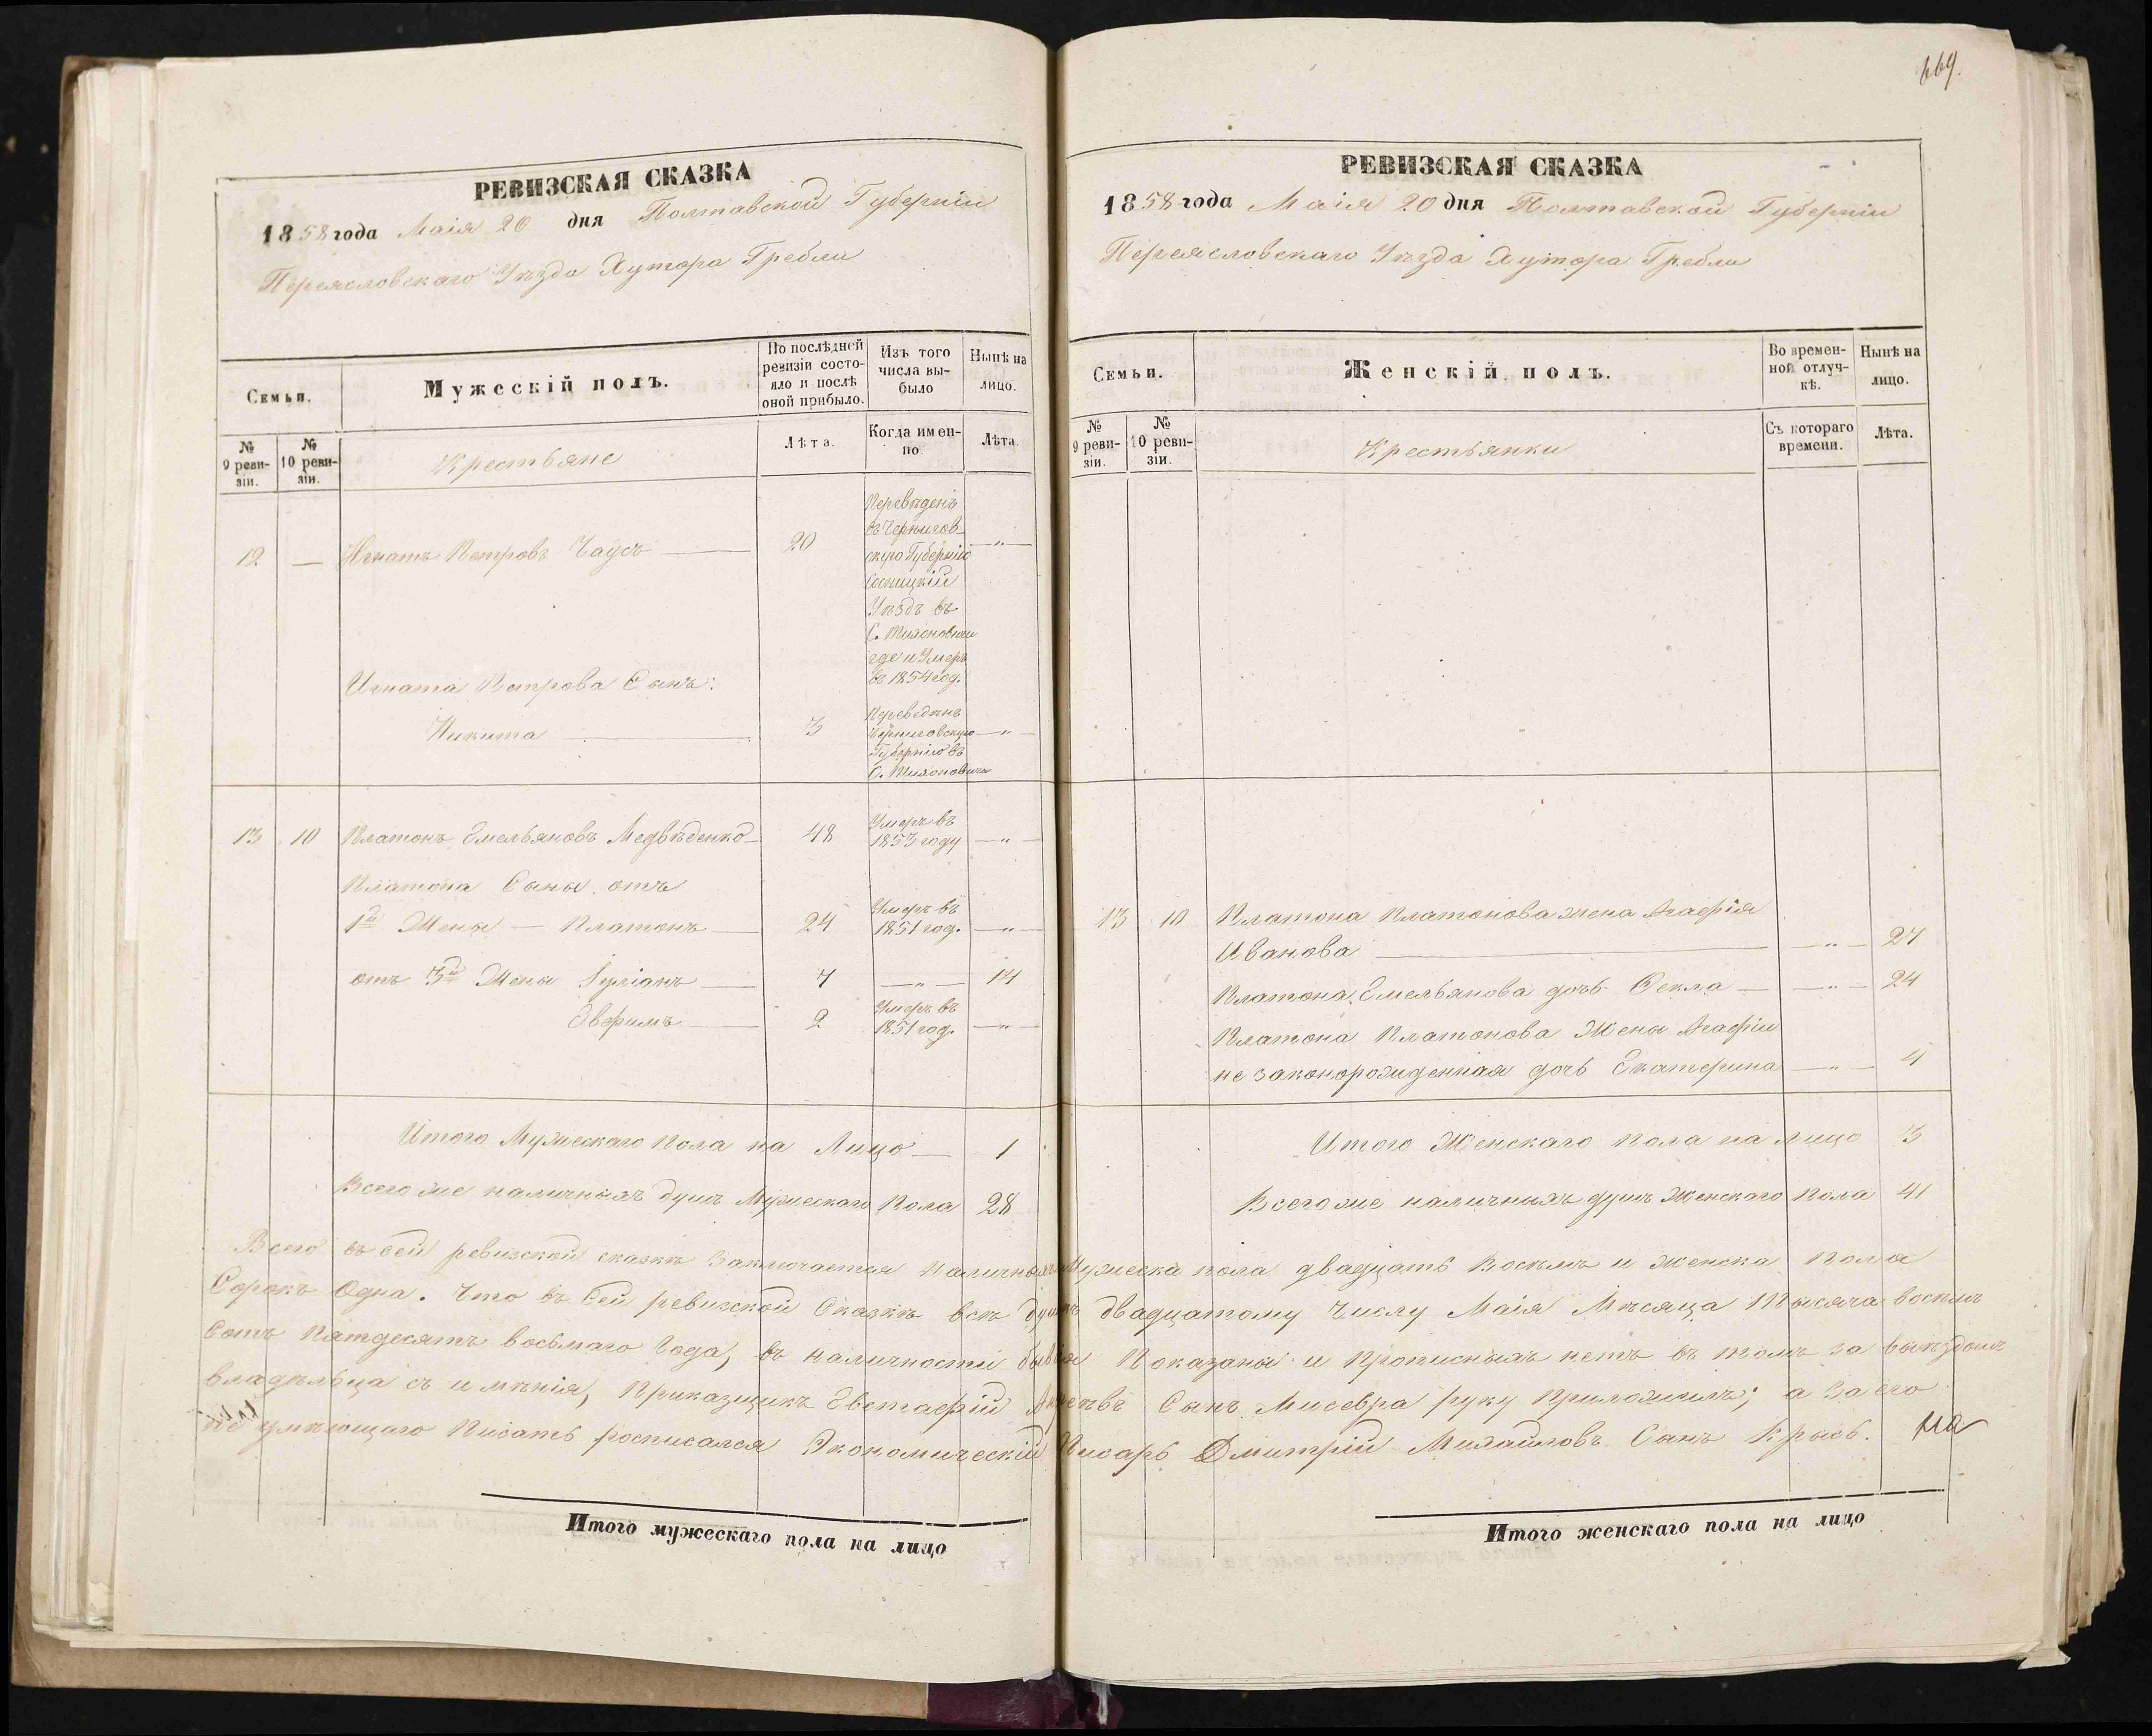 669.
РЕВИЗСКАЯ СКАЗКА
1858 года Маія 20 дня Полтавской Губерніи
Переясловскаго Уѣзда Хутора Гребли
Семьи.
Мужескій полъ.
По послѣдней ревизіи состояло и послѣ оной прибыло.
Изъ того числа выбыло
Нынѣ на лицо.
№ 9 ревизіи.
№ 10 ревизіи.
Крестьяне
Лѣта.
Когда именно
Лѣта.
12 — Игнатъ Петровъ Чаусъ — 20
Перевѣденъ
въ Чернигов-
скую Губернію — „ —
Сосницкій
Уѣздъ въ
С. Тихоновичи
где и Умеръ
въ 1854 год.
Игната Петрова Сынъ:
Никита — 3
Переведѣнъ
Черниговскую — „ —
Губернію въ
С. Тихоновичи
13 10 Платонъ Емельяновъ Медвѣденко — 48 Умеръ въ 1853 году — „ —
Платона Сыны отъ
1й Жены — Платонъ — 24 Умеръ въ 1851 год. — „ —
отъ 3й Жены Іуліанъ — 7 — „ — 14
Эвфимъ — 2 Умеръ въ 1851 год. — „ —
Итого Мужескаго пола на Лицо — 1
Всего же наличныхъ душъ Мужескаго Пола 28
РЕВИЗСКАЯ СКАЗКА
1858 года Маія 20 дня Полтавской Губерніи
Переясловскаго Уѣзда Хутора Гребли
Семьи.
Женскій полъ.
Во временной отлучкѣ.
Нынѣ на лицо.
№ 9 ревизіи.
№ 10 ревизіи.
Крестьянки
Съ котораго времени.
Лѣта.
13 10 Платона Платонова жена Агафія
Иванова — „ — 27
Платона Емельянова дочь Фекла — „ — 24
Платона Платонова Жены Агафіи
не законорожденная дочь Екатерина — „ — 4
Итого Женскаго пола на лицо 3
Всего же наличныхъ душъ Женскаго пола 41
Всего въ сей ревизской сказкѣ Заключается Наличныхъ Мужеска пола двадцать Восѣмъ и Женска Пола
Сорокъ Одна. Что въ Сей ревизской Сказкѣ всѣ душъ двадцатому Числу Маія Мѣсяца Тысяча восѣмъ
Сотъ Пятдесятъ восьмаго Года, въ наличности бывія Показаны и Прописныхъ нетъ въ томъ за выѣздомъ
владѣльца съ имѣнія, Приказщикъ Евстафій Сынъ Мисевра руку Приложилъ; а За его
не умѣющаго Писать росписался Экономическій Писарь Дмитрій Михайловъ Сынъ Крысь.
Итого мужескаго пола на лицо
Итого женскаго пола на лицо